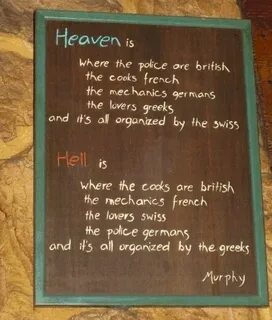 Heaven is
where the police are british
the cooks french
the mechanics germans
the lovers greeks
and it's all organized by the swiss
Hell is
where the cooks are british
the mechanics french
the lovers swiss
the police germans
and it's all organized by the greeks
Murphy